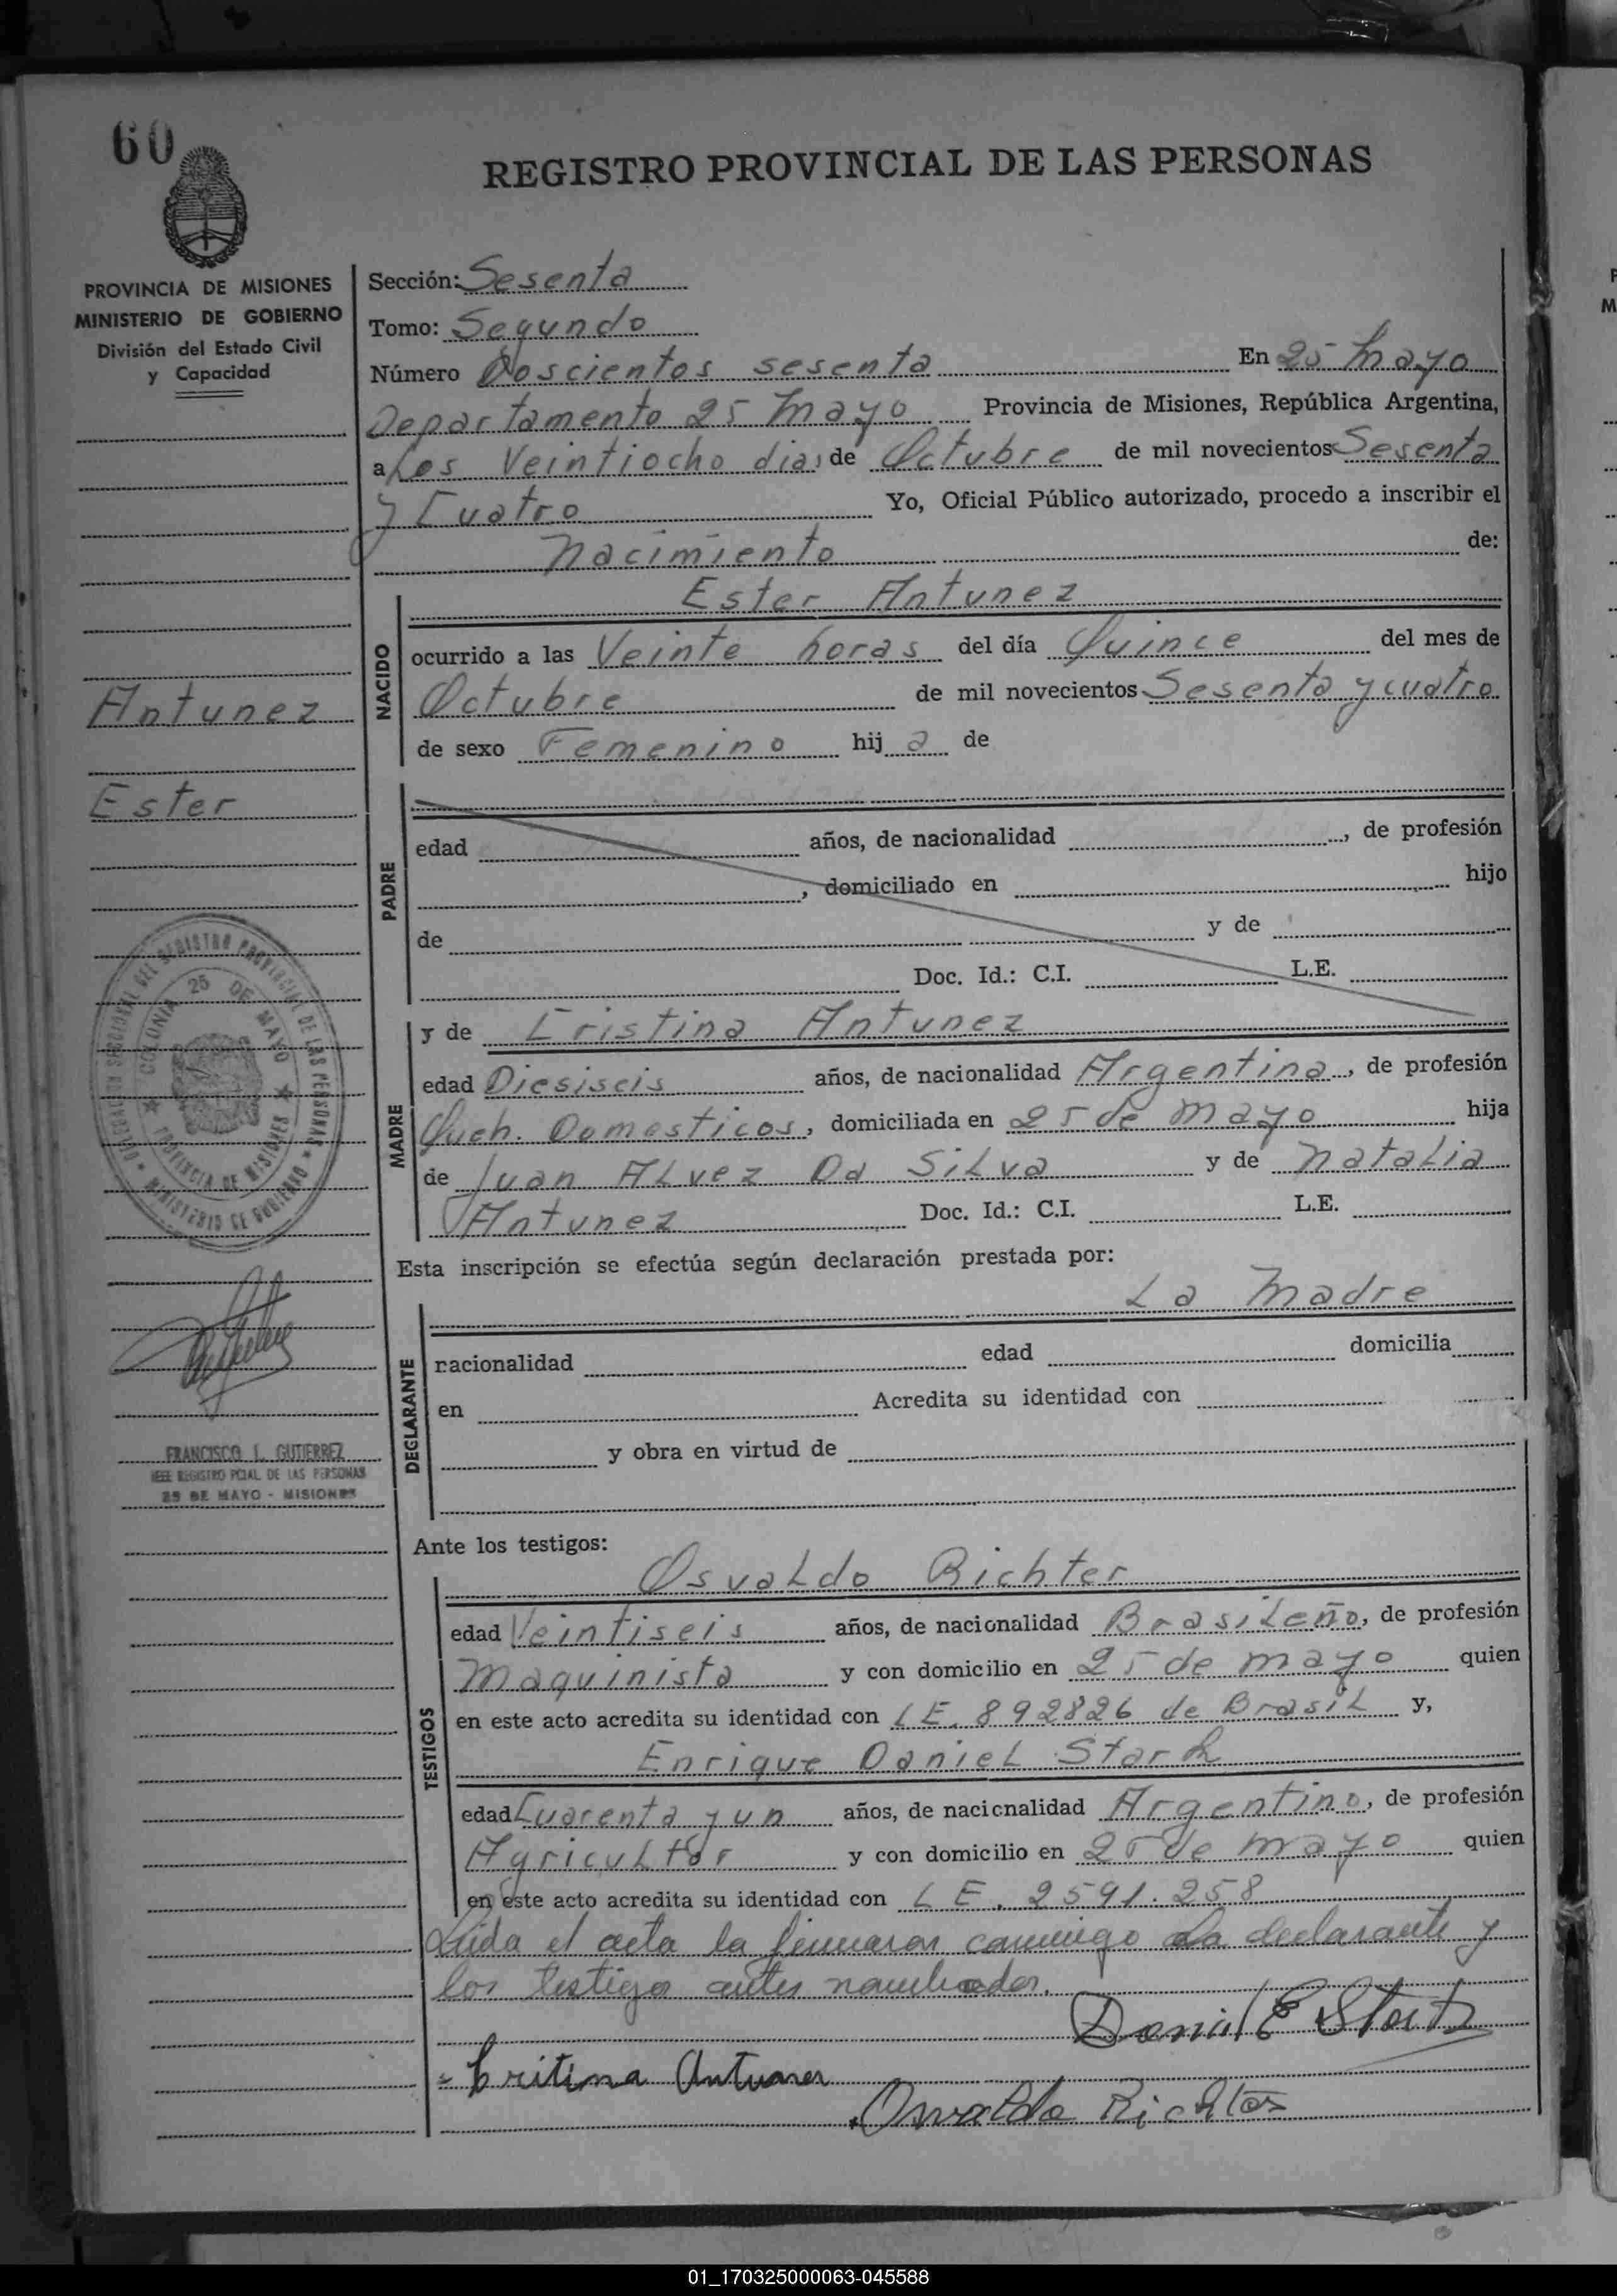 60
REGISTRO PROVINCIAL DE LAS PERSONAS
PROVINCIA DE MISIONES
MINISTERIO DE GOBIERNO
División del Estado Civil
y Capacidad
Sección: Sesenta
Tomo: Segundo
Número Doscientos sesenta En 25 Mayo
Departamento 25 Mayo Provincia de Misiones, República Argentina,
a Los Veintiocho dias de Octubre de mil novecientos Sesenta
y Cuatro Yo, Oficial Público autorizado, procedo a inscribir el
Nacimiento de:
Ester Antunez
NACIDO
ocurrido a las Veinte horas del día Quince del mes de
Octubre de mil novecientos Sesenta y cuatro
de sexo Femenino hij a de
Antunez
Ester
PADRE
edad años, de nacionalidad , de profesión
, domiciliado en hijo
de y de
Doc. Id.: C.I. L.E.
MADRE
y de Cristina Antunez
edad Diesiseis años, de nacionalidad Argentina, de profesión
Queh. Domesticos, domiciliada en 25 de Mayo hija
de Juan ALvez Da SiLva y de NataLia
Antunez Doc. Id.: C.I. L.E.
DELEGACION SECCIONAL DEL REGISTRO PROVINCIAL DE LAS PERSONAS
MINISTERIO DE GOBIERNO
COLONIA 25 DE MAYO
PROVINCIA DE MISIONES
Esta inscripción se efectúa según declaración prestada por:
La Madre
DECLARANTE
nacionalidad edad domicilia
en Acredita su identidad con
y obra en virtud de
FRANCISCO L. GUTIERREZ
JEFE REGISTRO PCIAL DE LAS PERSONAS
25 DE MAYO - MISIONES
Ante los testigos:
TESTIGOS
OsvaLdo Richter
edad Veintiseis años, de nacionalidad BrasiLeño, de profesión
Maquinista y con domicilio en 25 de Mayo quien
en este acto acredita su identidad con LE. 892826 de BrasiL y,
Enrique DanieL Stark
edad Cuarenta y un años, de nacionalidad Argentino, de profesión
AgricuLtor y con domicilio en 25 de Mayo quien
en este acto acredita su identidad con LE. 2591.258
Leida el acta la firmaron conmigo La declarante y
los testigo antes nombrados.
Daniel E Stark
Critina Antunez
Osvaldo Richter
01_170325000063-045588